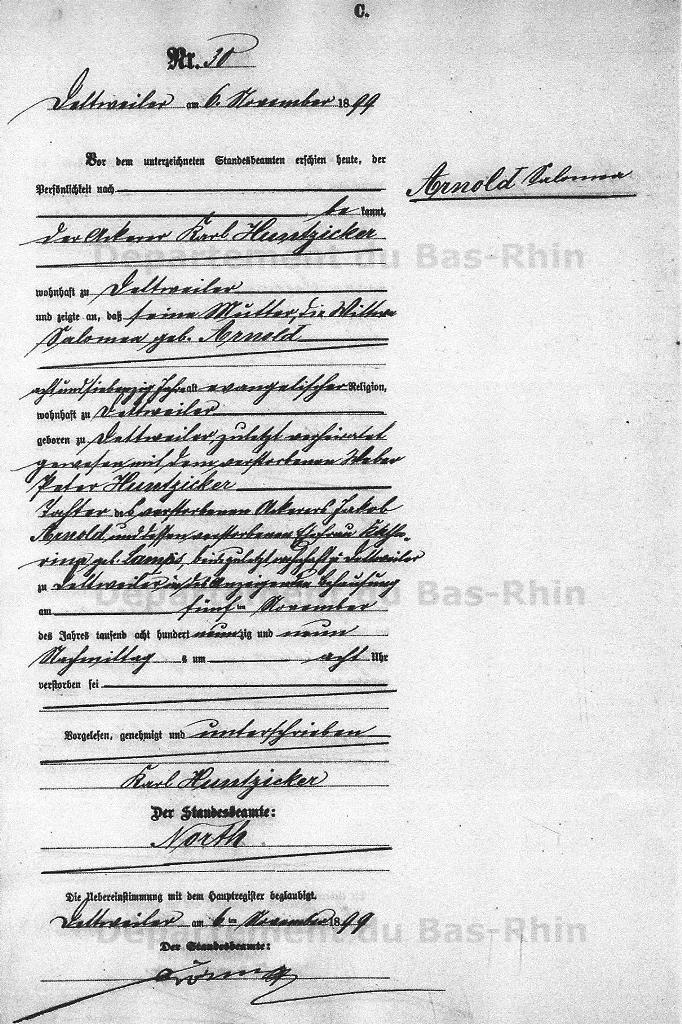 C.
Nr. 30
Dettweiler am 6. November 1899
Vor dem unterzeichneten Standesbeamten erschien heute, der
Persönlichkeit nach
be kannt,
Arnold Salomea
der Ackerer Karl Huntzicker
Departement du Bas-Rhin
wohnhaft zu Dettweiler
und zeigte an, daß seine Mutter, die Wittwe
Salomea geb. Arnold
acht und siebenzig Jahre alt evangelischer Religion,
wohnhaft zu Dettweiler
geboren zu Dettweiler zuletzt verheiratet
gewesen mit dem verstorbenen Weber
Peter Huntzicker
Tochter des verstorbenen Ackerers Jakob
Arnold und dessen verstorbenen Ehefrau Katha-
rina geb. beide zuletzt wohnhaft zu Dettweiler
zu Dettweiler in des Anzeigenden Behausung
Departement du Bas-Rhin
am fünften November
des Jahres tausend acht hundert neunzig und neun
Nachmittag s um acht Uhr
verstorben sei
Vorgelesen, genehmigt und unterschrieben
Karl Huntzicker
Der Standesbeamte:
North.
Die Uebereinstimmung mit dem Hauptregister beglaubigt.
Dettweiler am 6ten November 1899
Departement du Bas-Rhin
Der Standesbeamte: